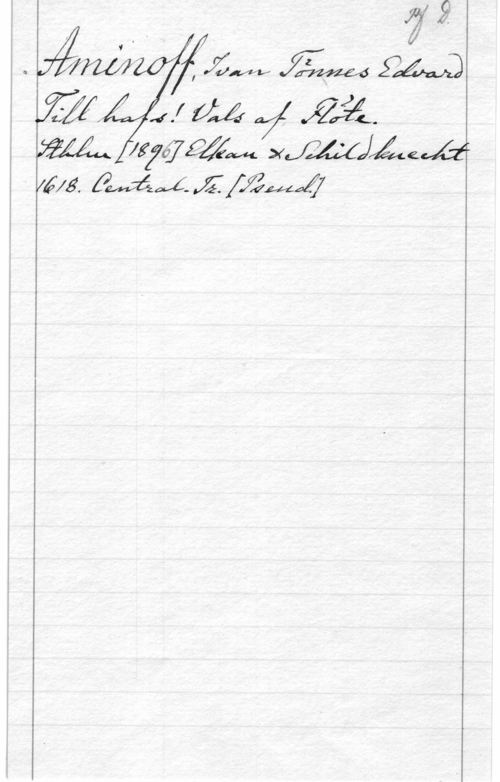 Pf D.
Aminoff, Ivan Tönnes Edvard
Till hafs! Vals af Flöte.
Sthlm [1896] Elkan & Schildknecht
1618. Central-Tr. [Pseud.]